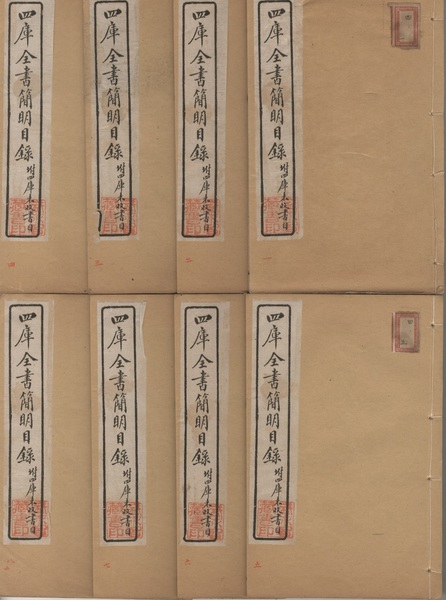 四庫全書簡明目錄坿四庫未收書目
一
四庫全書簡明目錄坿四庫未收書目
二
四庫全書簡明目錄坿四庫未收書目
三
四庫全書簡明目錄坿四庫未收書目
四
四庫全書簡明目錄坿四庫未收書目
五
四庫全書簡明目錄坿四庫未收書目
六
四庫全書簡明目錄坿四庫未收書目
七
四庫全書簡明目錄坿四庫未收書目
八止